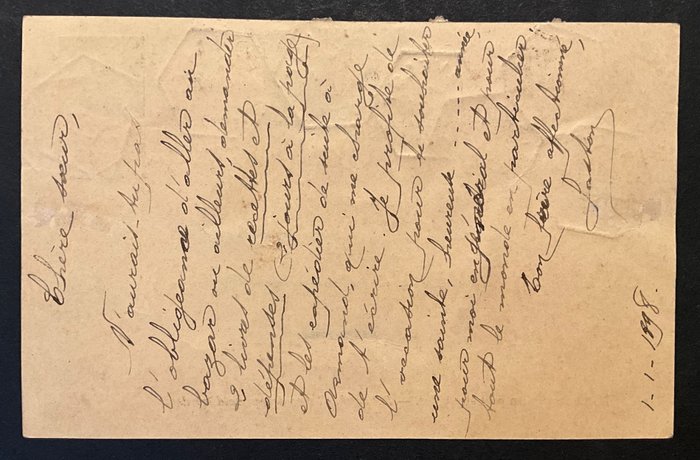 Chère sœur,
N'aurait tu pas
l'obligeance d'aller au
bazar ou ailleurs demander
2 livres de recettes et
dépenses (2 jours à la page)
et les expédier de suite à
Armand, qui me charge
de t'écrire. Je profite de
l'occasion pour te souhaiter
une sainte, heureuse ---- année,
pour moi en général et pour
tout le monde en particulier
Ton frère affectionné,
Gaston
1-1-1898.